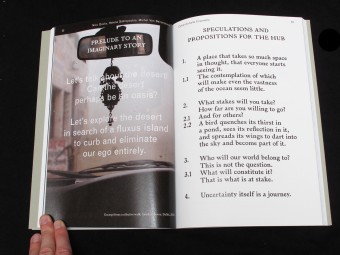 PRELUDE TO AN
IMAGINARY STORY
Let's
the desert
Can the desert
perhaps be an oasis?
Let's explore the desert
in search of a fluxus island
to curb and eliminate
our ego entirely.
SPECULATIONS AND
PROPOSITIONS FOR THE HUB
1. A place that takes so much space
in thought, that everyone starts
seeing it.
1.1 The contemplation of which
will make even the vastness
of the ocean seem little.
2. What stakes will you take?
How far are you willing to go?
2.1 And for others?
2.2 A bird quenches its thirst in
a pond, sees its reflection in it,
and spreads its wings to dart into
the sky and become part of it.
3. Who will our world belong to?
This is not the question.
3.1 What will constitute it?
That is what is at stake.
4. Uncertainty itself is a journey.